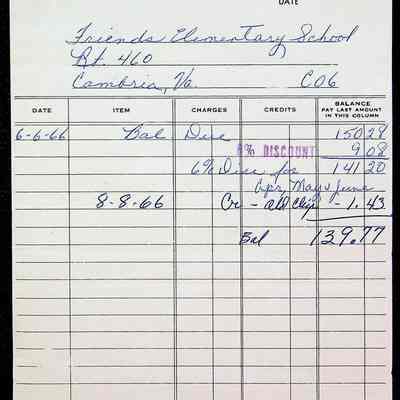 DATE
Friends Elementary School
Rt. 460
Cambria, Va. C06
DATE ITEM CHARGES CREDITS BALANCE
PAY LAST AMOUNT
IN THIS COLUMN
6-6-66 Bal Due 150 28
6% DISCOUNT 9 08
6% Disc for 141 20
Apr, May & June
8-8-66 Cr - old chip - 1.43
Bal 139.77